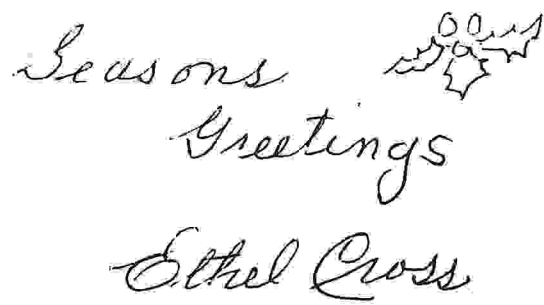 Seasons
Greetings
Ethel Cross